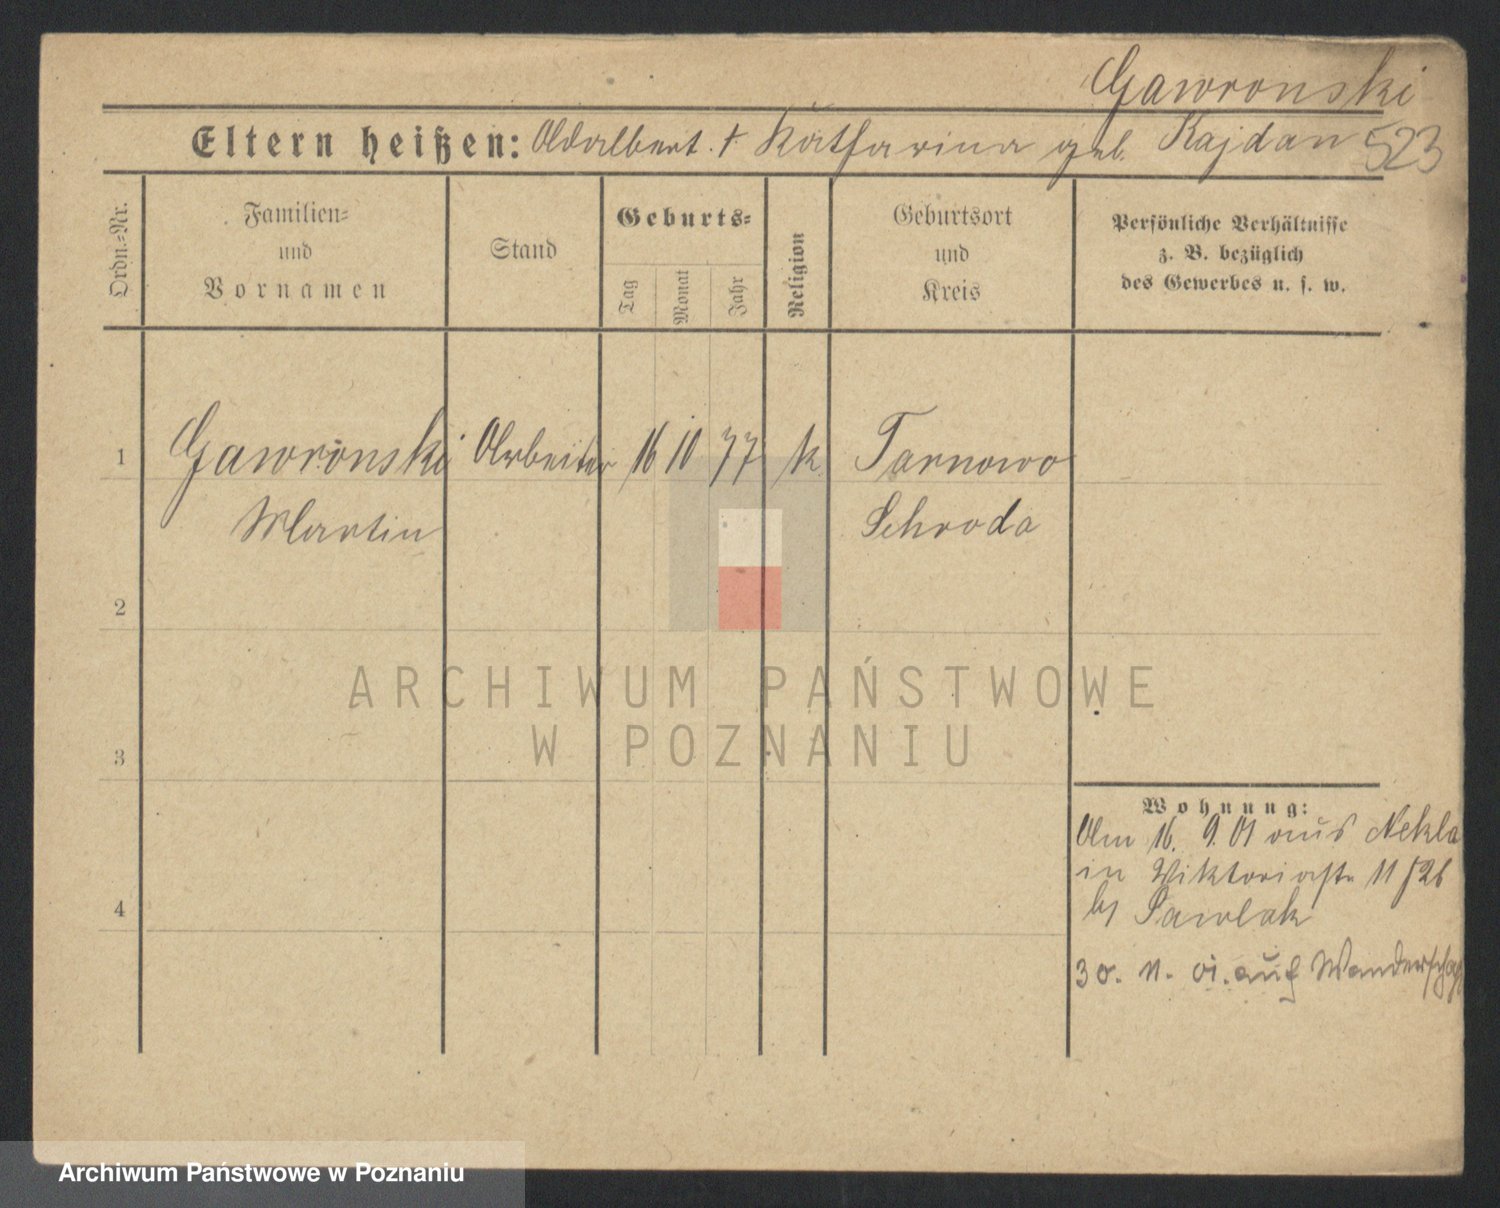 Gawronski
Eltern heißen: Adalbert. + Katharina geb. Kajdan 523
Ordn.-Nr.
Familien-
und
Vornamen
Stand
Geburts-
Tag
Monat
Jahr
Religion
Geburtsort
und
Kreis
Persönliche Verhältnisse
z. B. bezüglich
des Gewerbes u. s. w.
1 Gawronski Arbeiter 16 10 77 k. Tarnowo
Martin Schroda
2
ARCHIWUM PAŃSTWOWE
W POZNANIU
3
Wohnung:
Am 16. 9. 01 aus Nekla
in Viktoriastr 11
bei Pawlak
4
30. 11. 01. auf Wanderschaft
Archiwum Państwowe w Poznaniu